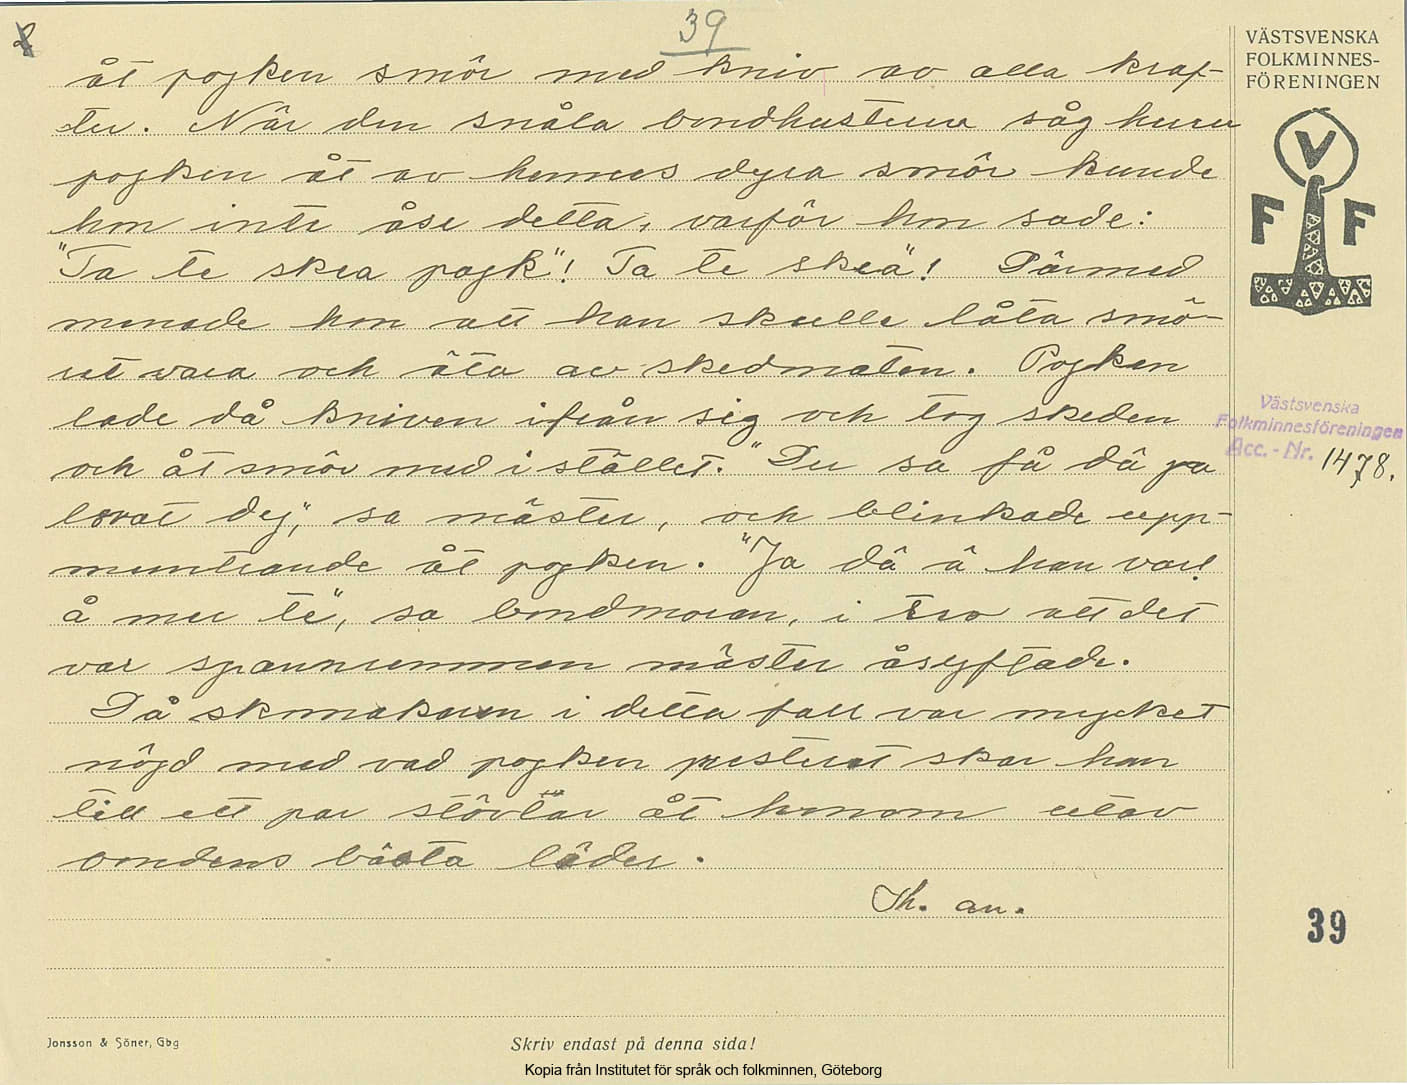 39
VÄSTSVENSKA
FOLKMINNES-
FÖRENINGEN
V
F F
åt pojken smör med kniv av alla kraf-
ter. När den snåla bondhustrun såg huru
pojken åt av hennes dyra smör kunde
hon inte åse detta, varför hon sade:
"Ta te skea pojk"! Ta te skeä"! Därmed
menade hon att han skulle låta smö-
ret vara och äta av skedmaten. Pojken
lade då kniven ifrån sig och tog skeden
och åt smör med i stället. "Du sa få dä ja
lovat dej", sa mäster, och blinkade upp-
muntrande åt pojken. "Ja dä ä han värd
å mer te", sa bondmoran, i tro att det
var spannremmen mäster åsyftade.
Då skomakaren i detta fall var mycket
nöjd med vad pojken presterat skar han
till ett par stövlar åt honom utav
bondens bästa läder.
Th. an.
Västsvenska
Folkminnesföreningen
Acc.-Nr. 1478.
39
Jonsson & Söner, Gbg
Skriv endast på denna sida!
Kopia från Institutet för språk och folkminnen, Göteborg